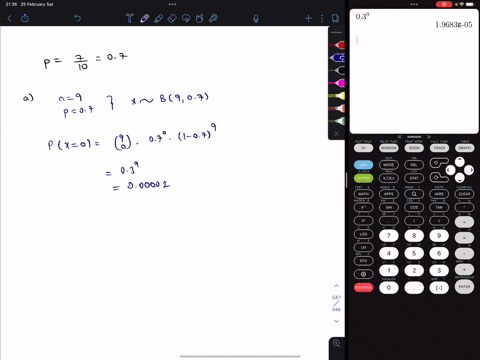 21:38 25 February Sat
P = 7/10 = 0.7
a) n=9
p=0.7 } x ~ B(9, 0.7)
P(x=0) = (9 0) . 0.7⁰ . (1-0.7)⁹
= 0.3⁹
= 0.00002
0.3⁹
1.9683E-05
547
/
548
WINDOW
ZOOM
TRACE
GRAPH
MODE
DEL
X,T,θ,n
STAT
MATH
APPS
PRGM
VARS
CLEAR
SIN
COS
TAN
^
x²
,
(
)
÷
LOG
7
8
9
×
LN
4
5
6
-
STO
1
2
3
+
0
.
(-)
ENTER